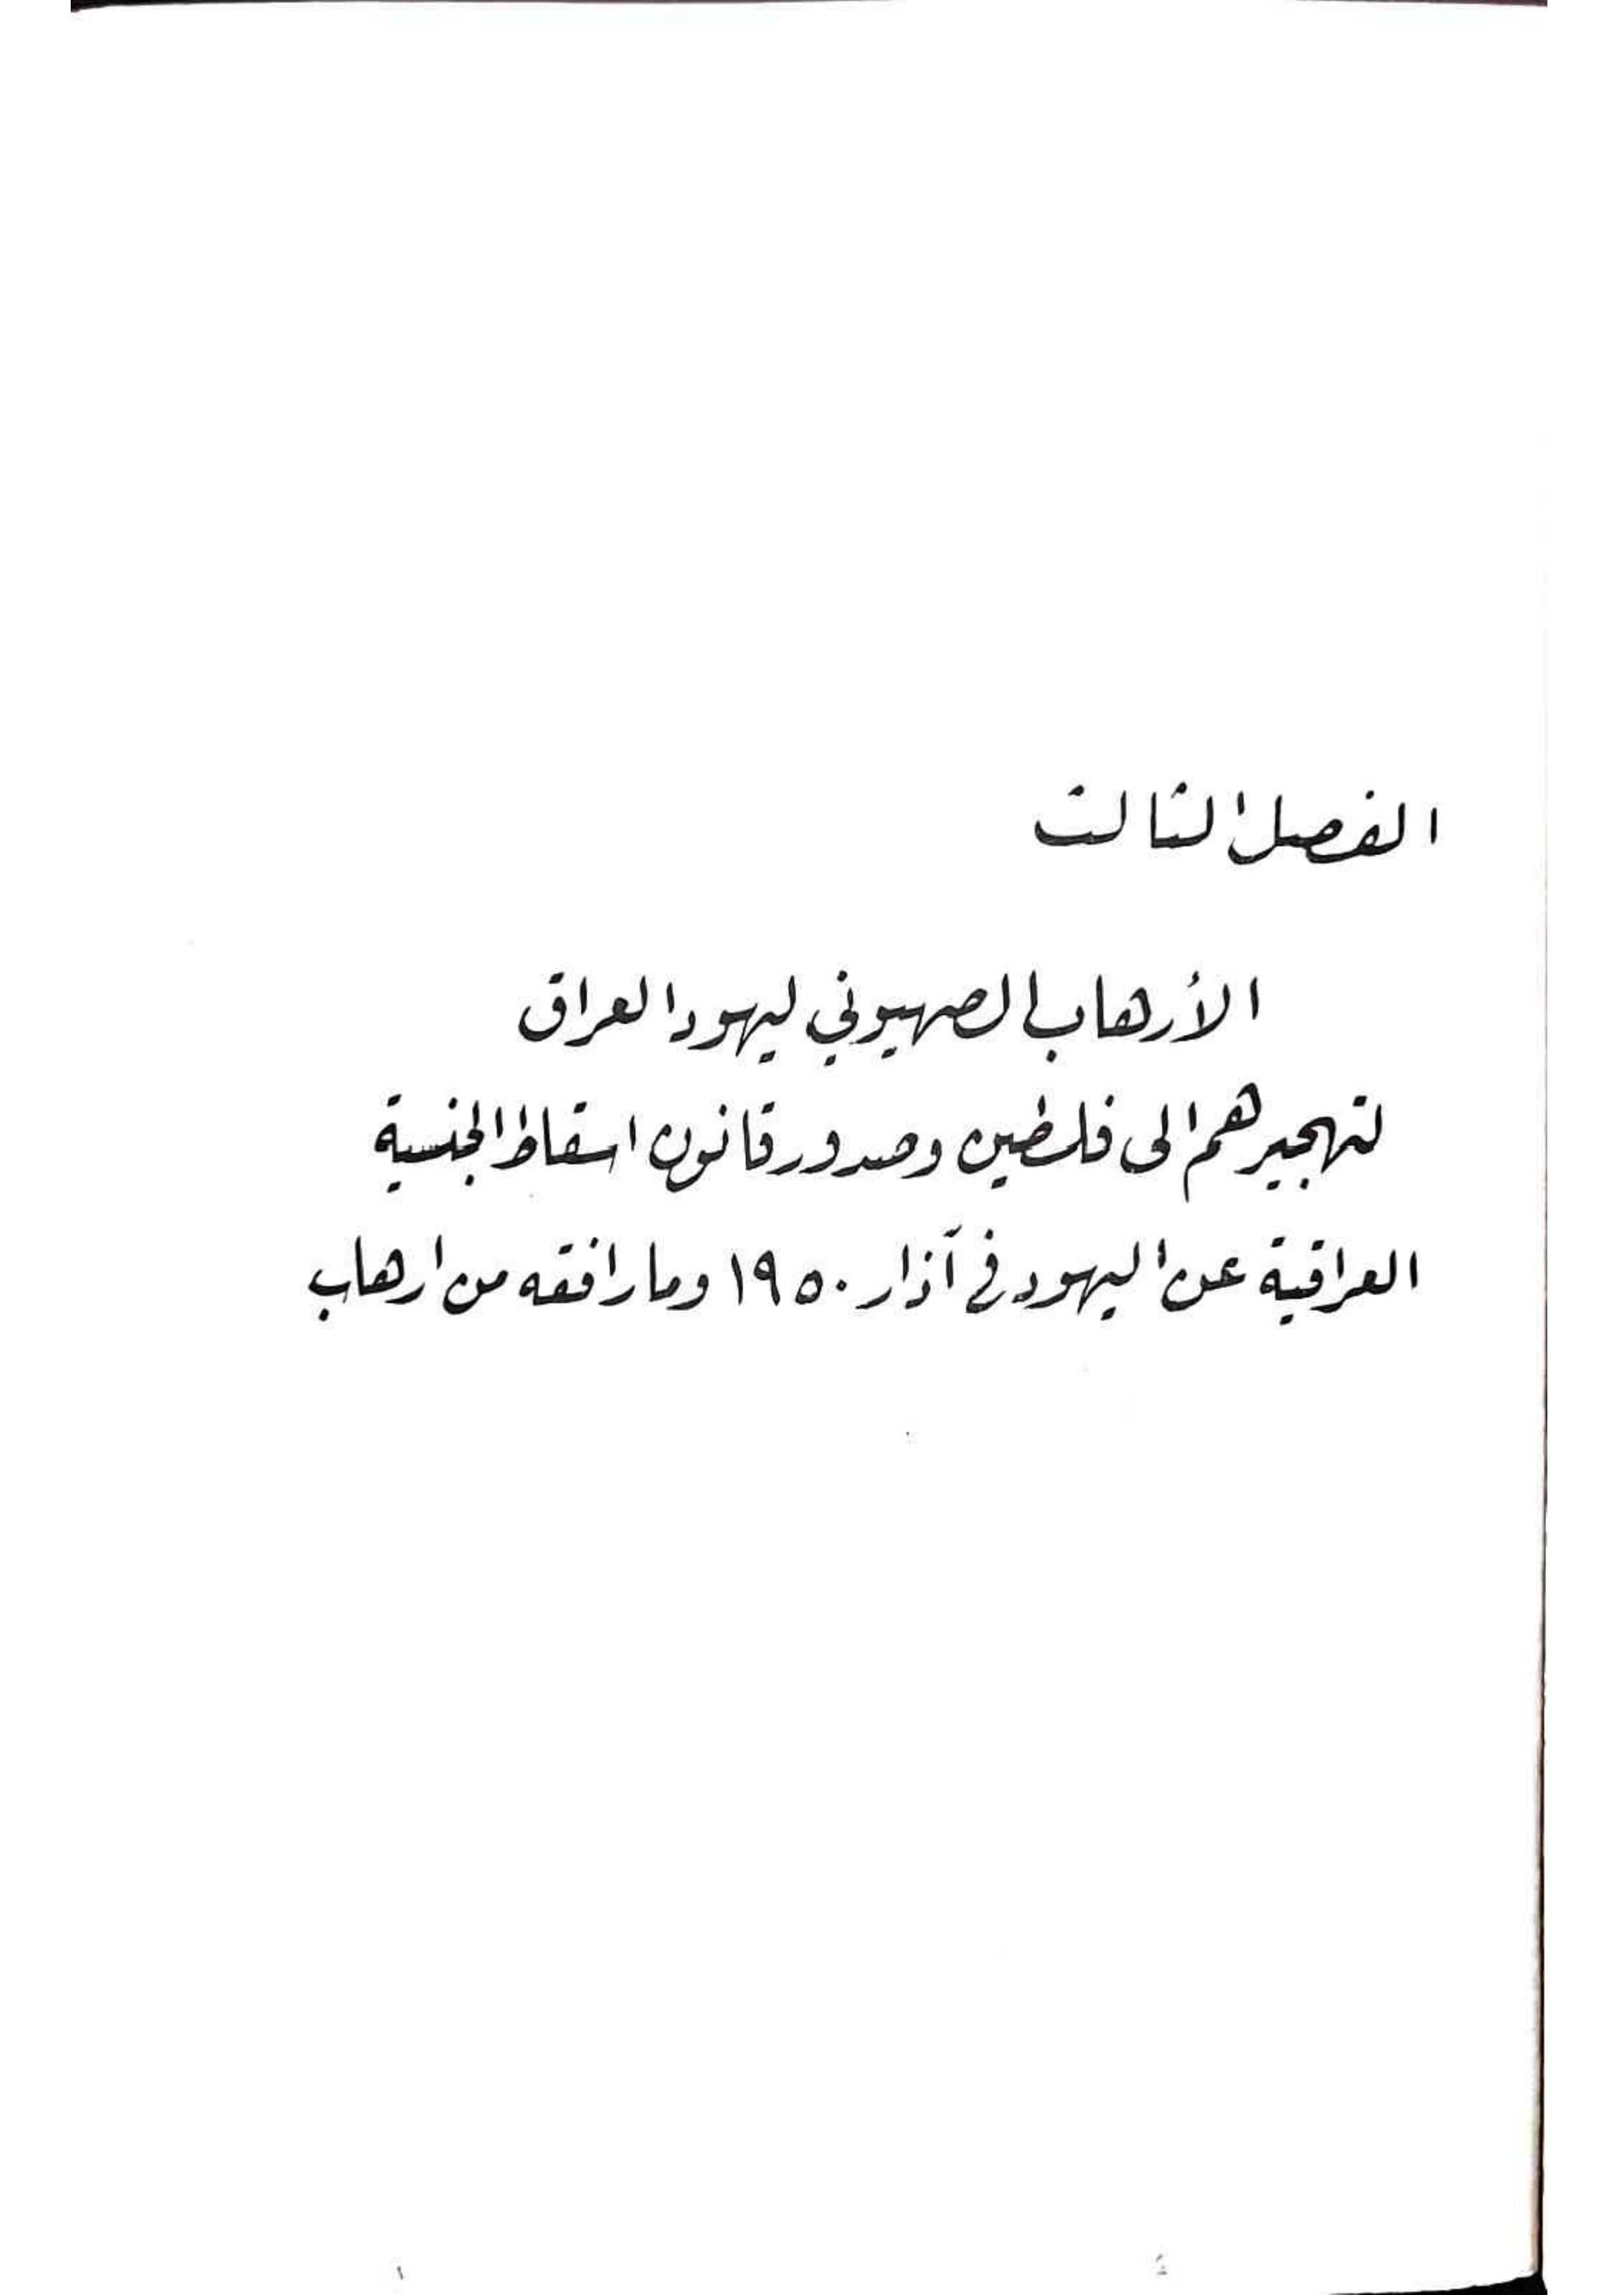 الفصل الثالث
الأرهاب الصهيوني ليهود العراق
لتهجيرهم الى فلسطين وصدور قانون اسقاط الجنسية
العراقية عن اليهود في آذار ١٩٥٠ وما رافقه من ارهاب